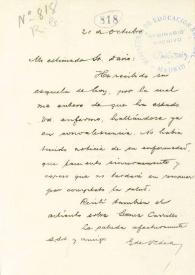 Nº 818
R
818
20 de Octubre
Mi estimado Sr. 
He recibido su
esquela de hoy, por la cual
me entero de que ha estado
Vd enfermo, hallándose ya
en convalecencia. No había
tenido noticia de su enfermedad
que lamento sinceramente y
espero que no tardará en recuperar
por completo la salud.
Recibí también el
artículo sobre Gómez Carrillo
Le saluda afectuosamente
y amigo